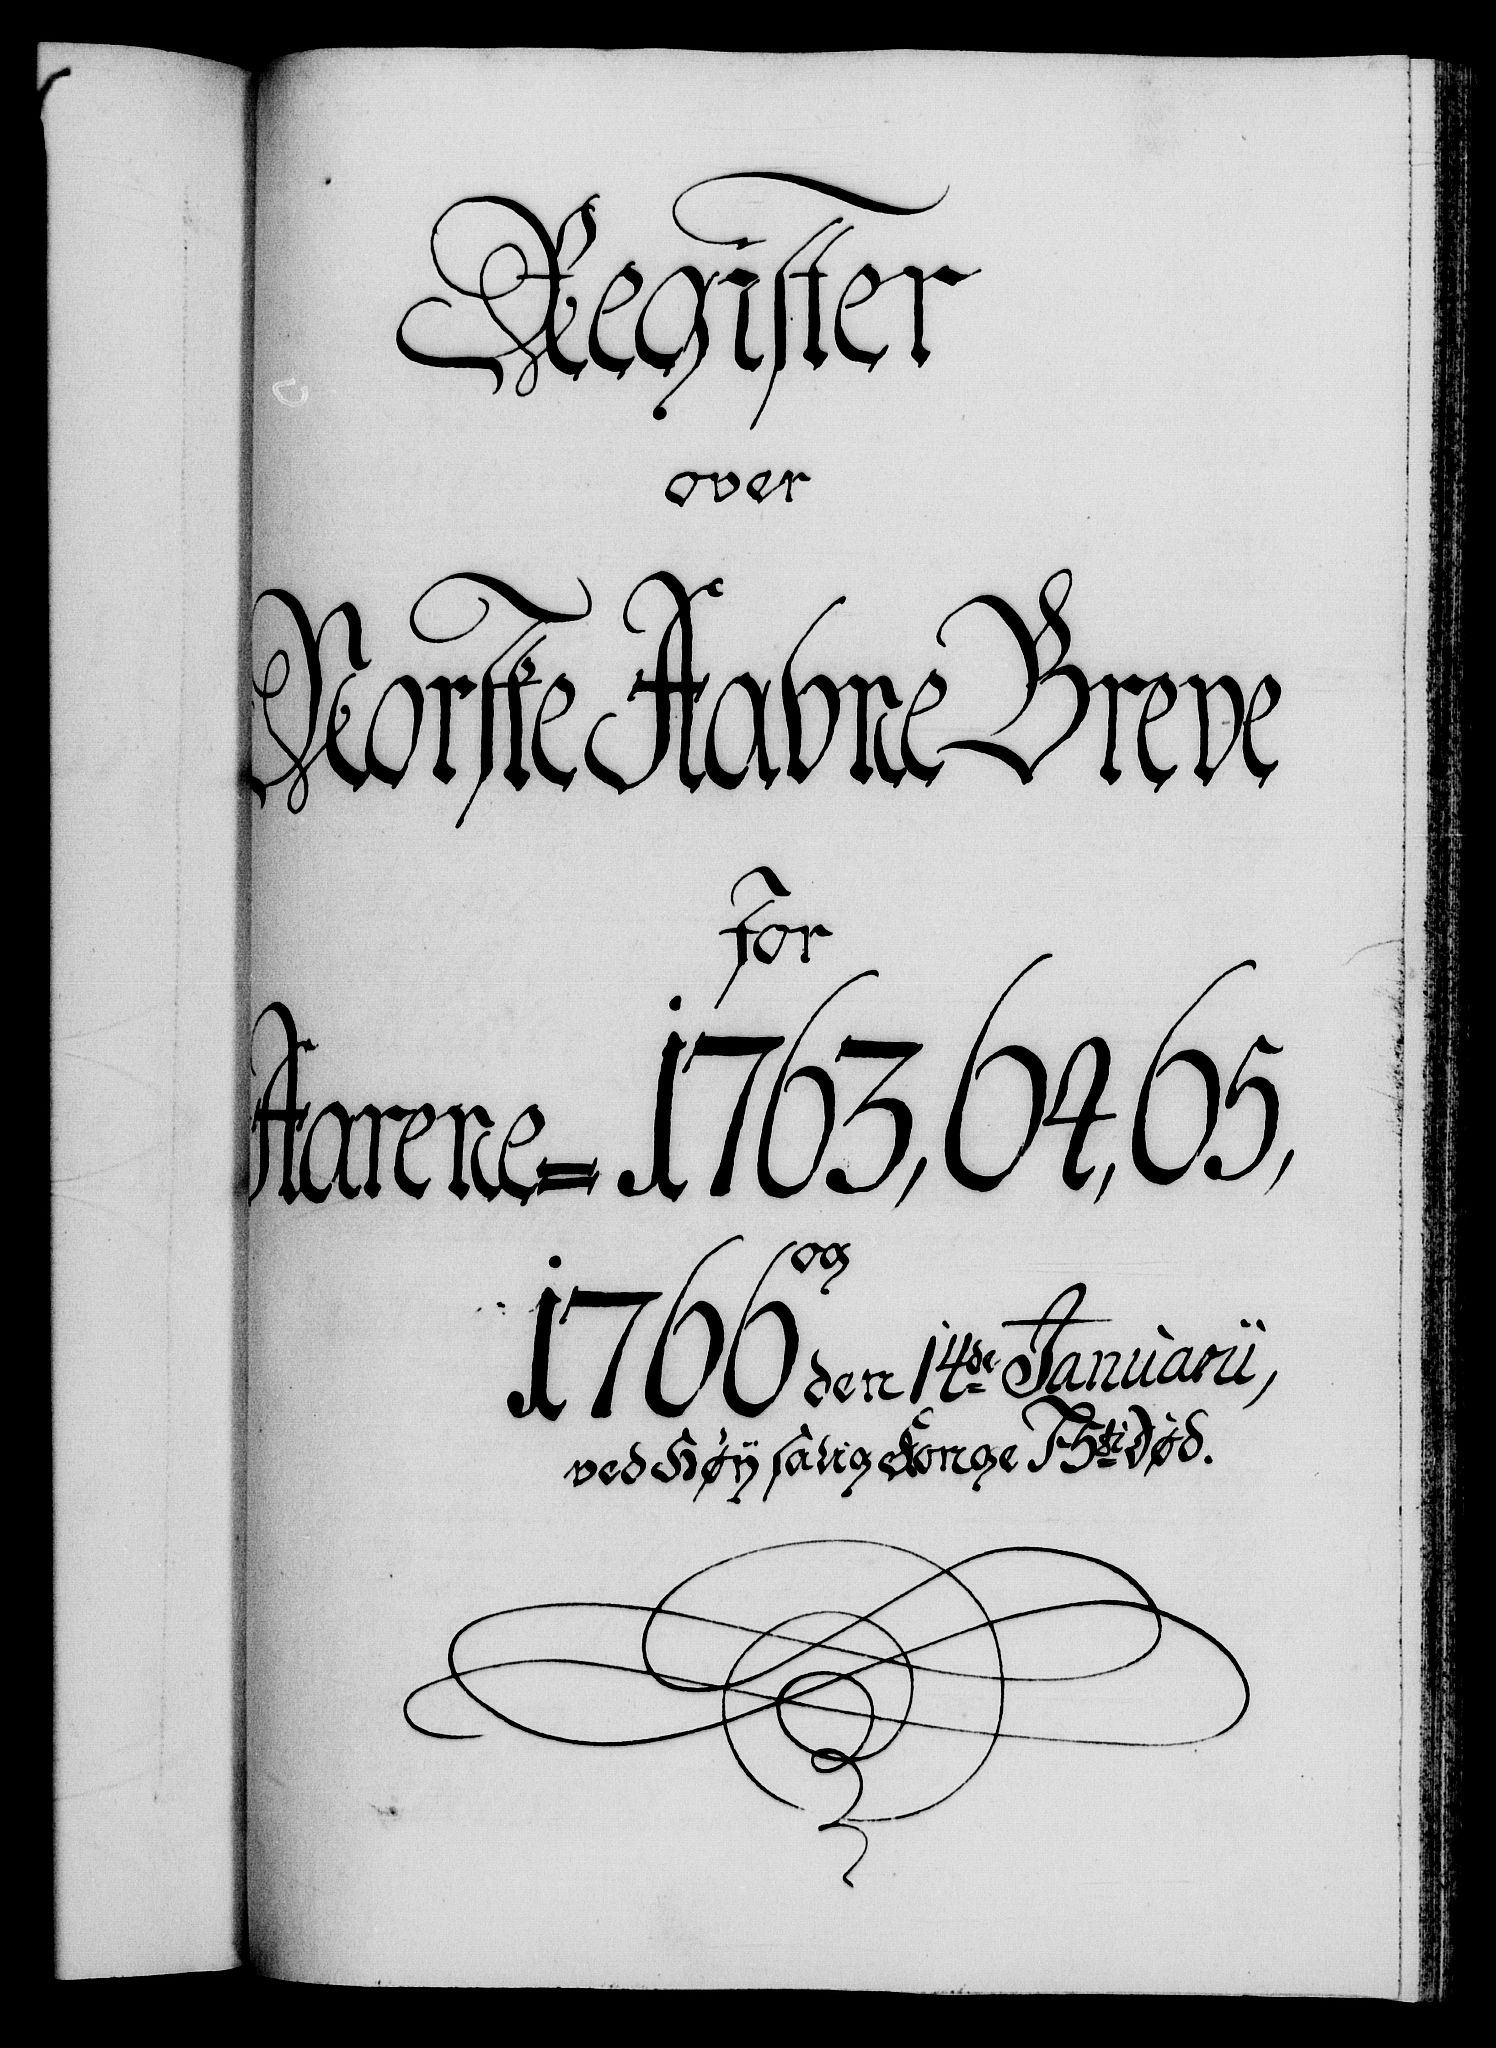 Register
over
Norske Aabne Breve
for
Aarene= 1763, 64, 65,
og
1766 den 14de Januarii,
ved Høÿ salig Konge F: 5ti Død.